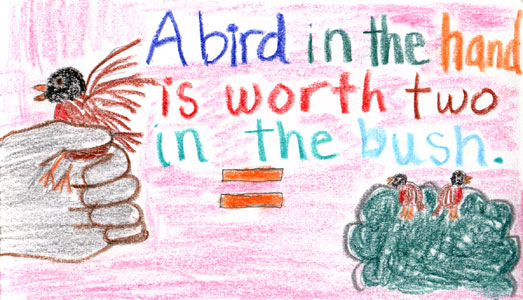 A bird in the hand
is worth two
in the bush.
=